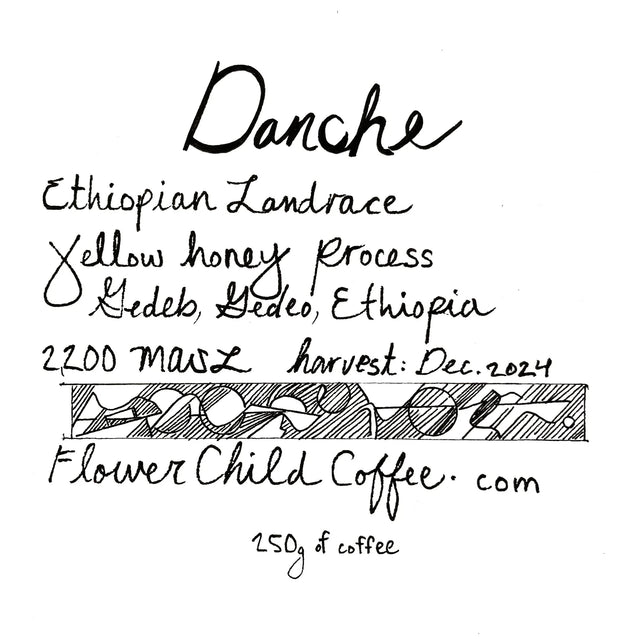 Danche
Ethiopian Landrace
Yellow honey process
Gedeb, Gedeo, Ethiopia
2200 masl harvest: Dec. 2024
Flower Child Coffee. com
250g of coffee